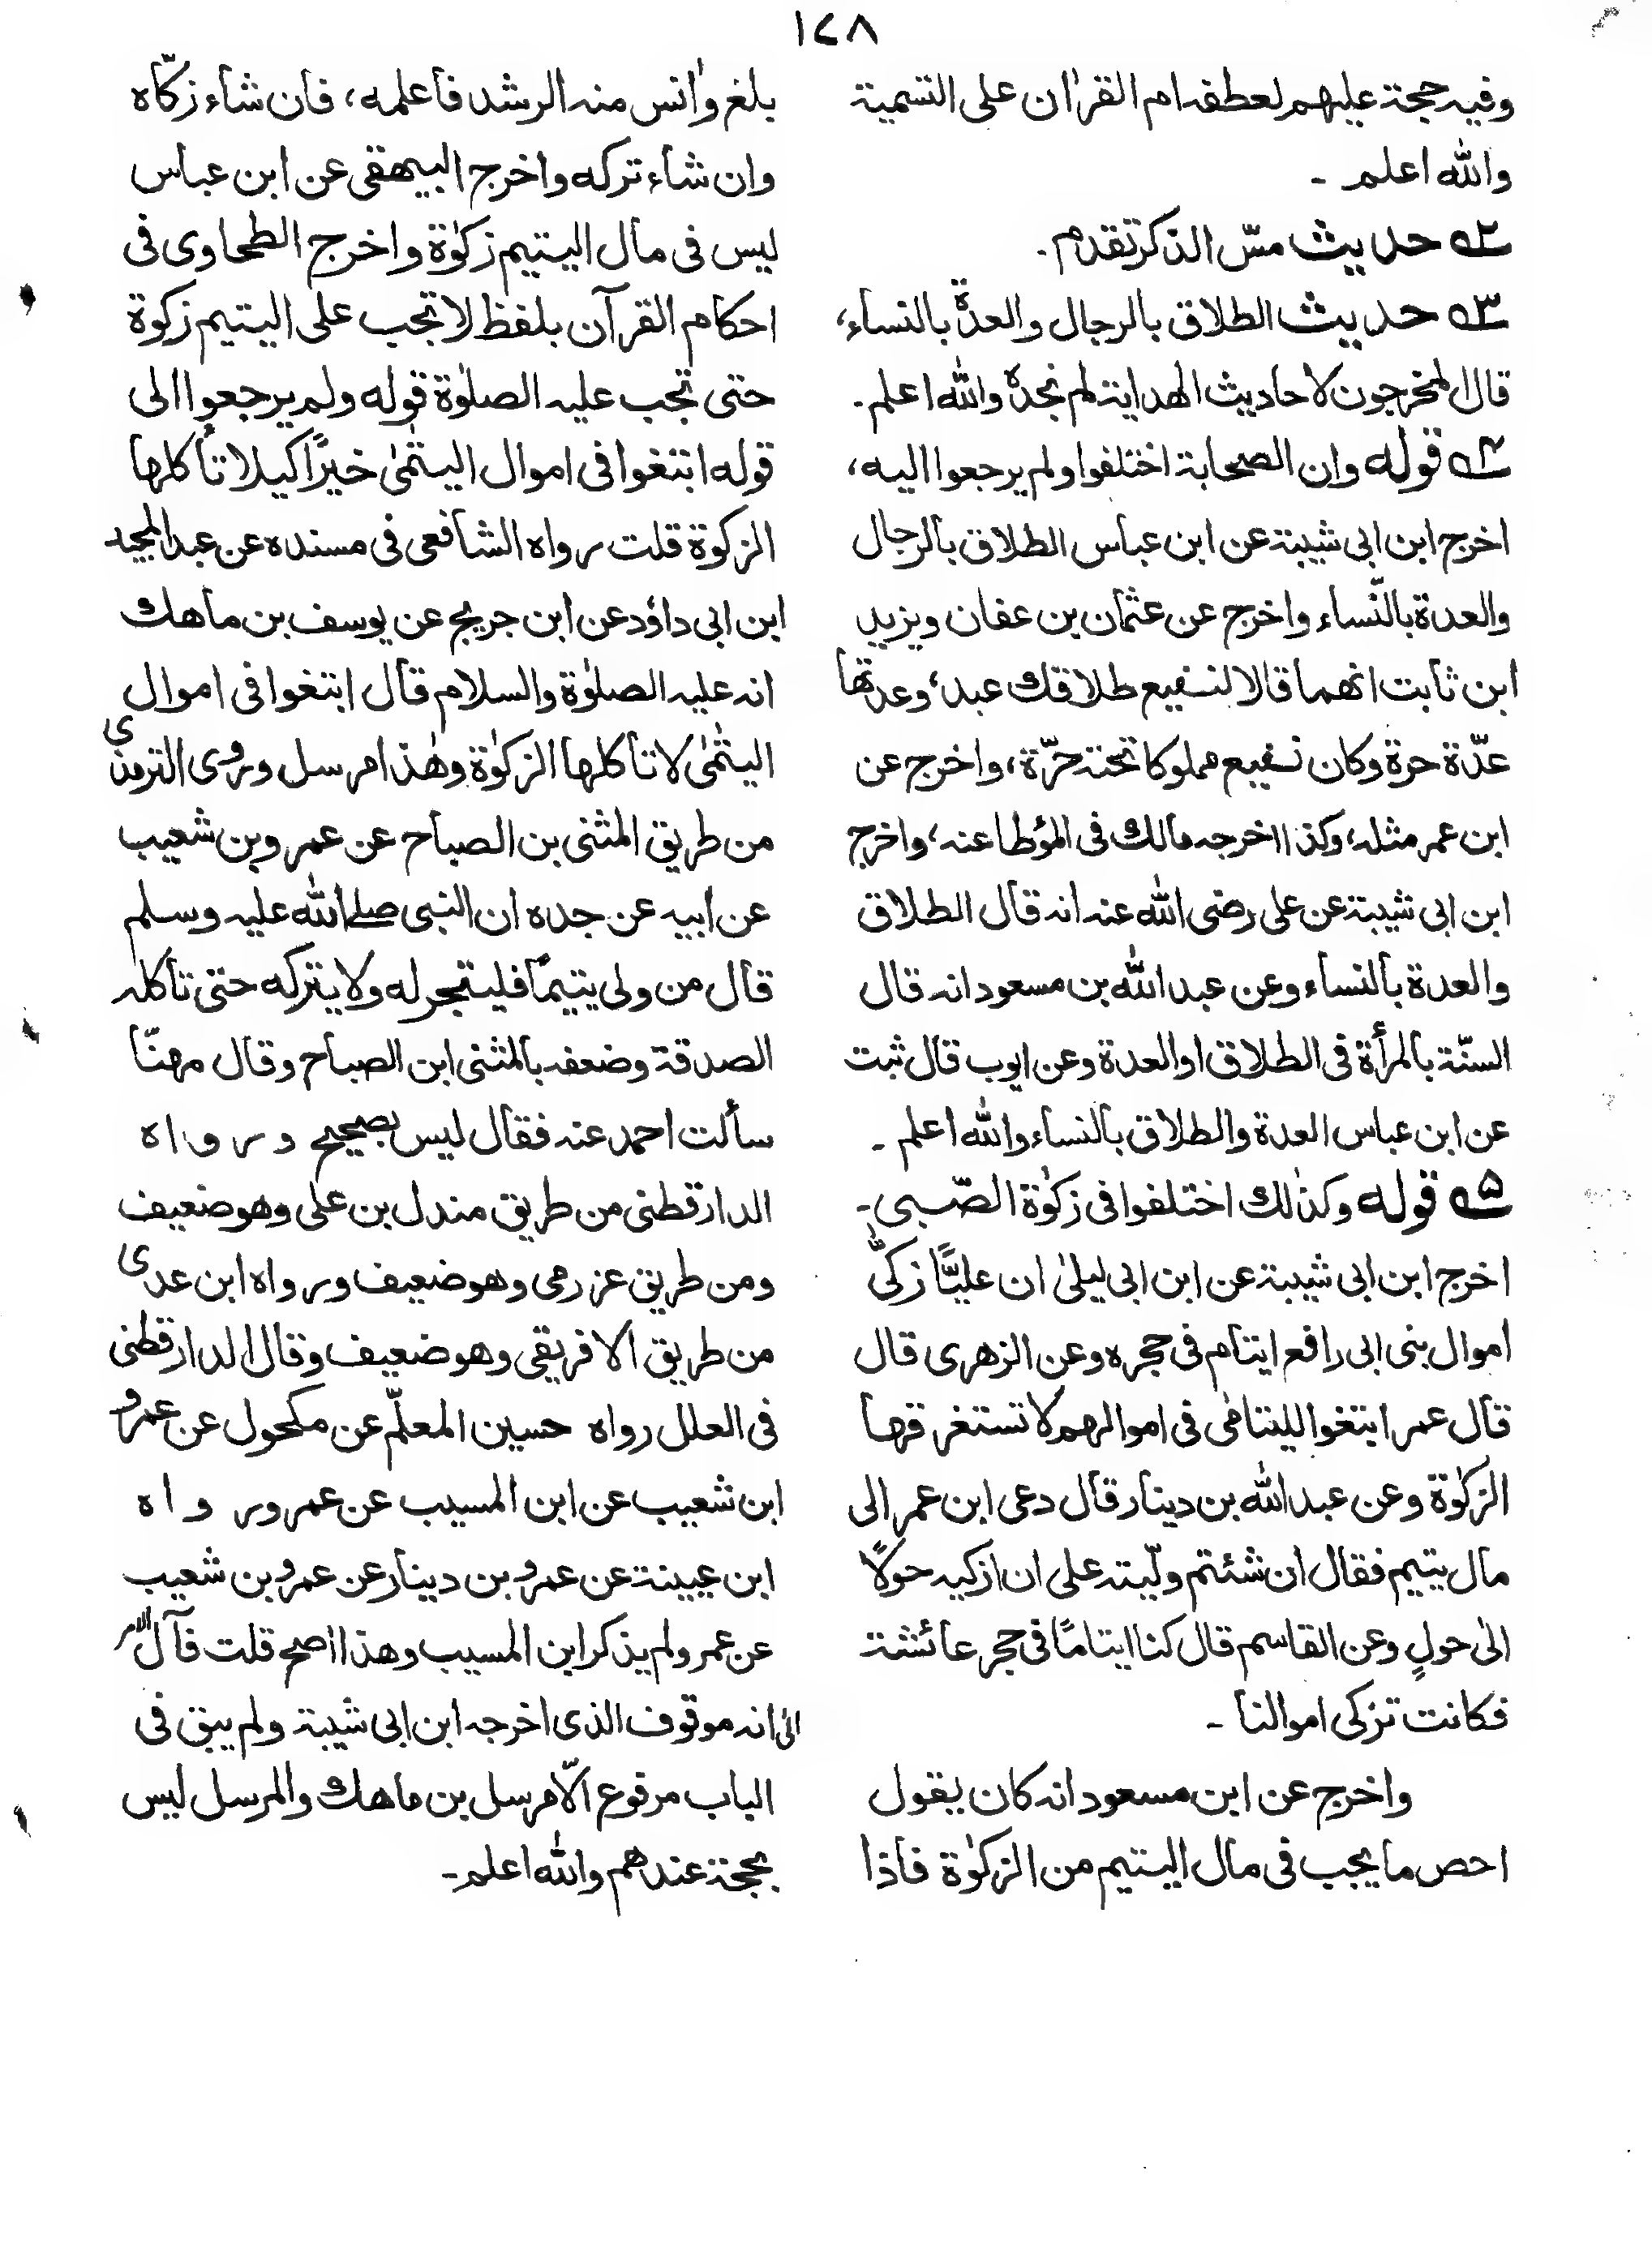 ١٤٨
وفیہ حجۃ علیہم لعطفہ ام القرٰان علی التسمیۃ
واللّٰہ اعلم ۔
۲؎ حدیث مسّ الذکر تقدم ۔
۳؎ حدیث الطلاق بالرجال والعدۃ بالنساء،
قال المخرجون لاحادیث الھدایۃ لم نجدہ واللّٰہ اعلم ۔
۴؎ قولہ وان الصحابۃ اختلفوا ولم یرجعوا الیہ،
اخرج ابن ابی شیبۃ عن ابن عباس الطلاق بالرجال
والعدۃ بالنّساء واخرج عن عثمان بن عفان ویزید
ابن ثابت انھما قالا لنفیع طلاقك عبد، وعدتھا
عدّۃ حرۃ وکان نفیع مملوکا تحتہ حرّۃ، واخرج عن
ابن عمر مثلہ، وکذا اخرجہ مالك فی المؤطا عنہ، واخرج
ابن ابی شیبۃ عن علی رضی اللّٰہ عنہ انہ قال الطلاق
والعدۃ بالنساء وعن عبد اللّٰہ بن مسعود انہ قال
السنّۃ بالمرأۃ فی الطلاق او العدۃ وعن ایوب قال ثبت
عن ابن عباس العدۃ والطلاق بالنساء واللّٰہ اعلم ۔
۵؎ قولہ وکذٰلك اختلفوا فی زکوٰۃ الصّبی ۔
اخرج ابن ابی شیبۃ عن ابن ابی لیلیٰ ان علیًّا زکّی
اموال بنی ابی رافع ایتام فی حجرہ وعن الزھری قال
قال عمر ابتغوا للیتامٰی فی اموالہم لا تستغرقہا
الزکوٰۃ وعن عبد اللّٰہ بن دینار قال دعی ابن عمر الی
مال یتیم فقال ان شئتم ولّیتہ علی ان ازکیہ حولًا
الیٰ حولٍ وعن القاسم قال کنا ایتامًا فی حجر عائشۃ
فکانت تزکی اموالنا ۔
واخرج عن ابن مسعود انہ کان یقول
احص ما یجب فی مال الیتیم من الزکوٰۃ فاذا
بلغ واٰنس منہ الرشد فاعلمہ، فان شاء زکّاہ
وان شاء ترکہ واخرج البیھقی عن ابن عباس
لیس فی مال الیتیم زکوٰۃ واخرج الطحاوی فی
احکام القرآن بلفظ لا تجب علی الیتیم زکوۃ
حتی تجب علیہ الصلوٰۃ قولہ ولم یرجعوا الی
قولہ ابتغوا فی اموال الیتٰمٰی خیرًا کیلا تأکلہا
الزکوۃ قلت رواہ الشافعی فی مسندہ عن عبد المجید
ابن ابی داؤد عن ابن جریج عن یوسف بن ماھك
انہ علیہ الصلوٰۃ والسلام قال ابتغوا فی اموال
الیتٰمٰی لا تاکلھا الزکوٰۃ وھٰذا مرسل وروی الترمذی
من طریق المثنی بن الصباح عن عمرو بن شعیب
عن ابیہ عن جدہ ان النبی صلے اللّٰہ علیہ وسلم
قال من ولی یتیمًا فلیتجر لہ ولا یترکہ حتی تأکلہ
الصدقۃ وضعفہ بالمثنی ابن الصباح وقال مھنّا
سألت احمد عنہ فقال لیس بصحیح ورواہ
الدارقطنی من طریق مندل بن علی وھو ضعیف
ومن طریق عزرمی وھو ضعیف ورواہ ابن عدی
من طریق الافریقی وھو ضعیف وقال الدارقطنی
فی العلل رواہ حسین المعلّم عن مکحول عن عمرو
ابن شعیب عن ابن المسیب عن عمر ورواہ
ابن عیینۃ عن عمرو بن دینار عن عمرو بن شعیب
عن عمر ولم یذکر ابن المسیب وھذا اصح قلت فآل الامر
الیٰ انہ موقوف الذی اخرجہ ابن ابی شیبۃ ولم یبق فی
الباب مرفوع الّا مرسل بن ماھك والمرسل لیس
بحجۃ عندھم واللّٰہ اعلم ۔